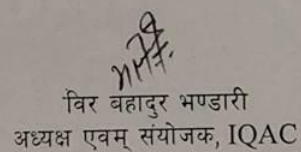 विर बहादुर भण्डारी
अध्यक्ष एवम् संयोजक, IQAC